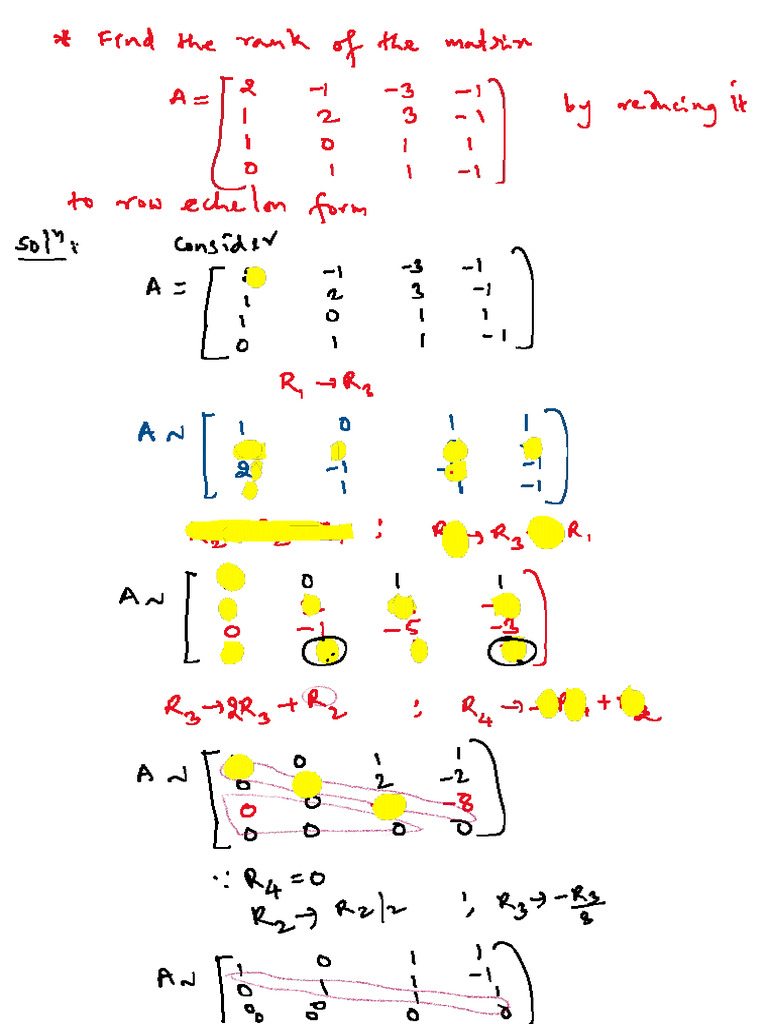 * Find the rank of the matrix
A = [ 2 -1 -3 -1
1 2 3 -1 by reducing it
1 0 1 1
0 1 1 -1 ]
to row echelon form
Soln: Consider
A = [ -1 -3 -1
1 2 3 -1
1 0 1 1
0 1 1 -1 ]
R1 → R3
A ~ [ 1 0 1 1
2 -1 - -1
1 1 -1 ]
; R → R3 R1
A ~ [ 0 1 1
-
0 -1 -5 -3
]
R3 → 2R3 + R2 ; R4 → + 2
A ~ [ 0 1 1
0 2 -2
0 0 -8
0 0 0 0 ]
∵ R4 = 0
R2 → R2/2 ; R3 → -R3/8
A ~ [ 1 0 1 1
0 1 1 -1
0 0 1
0 0 0 0